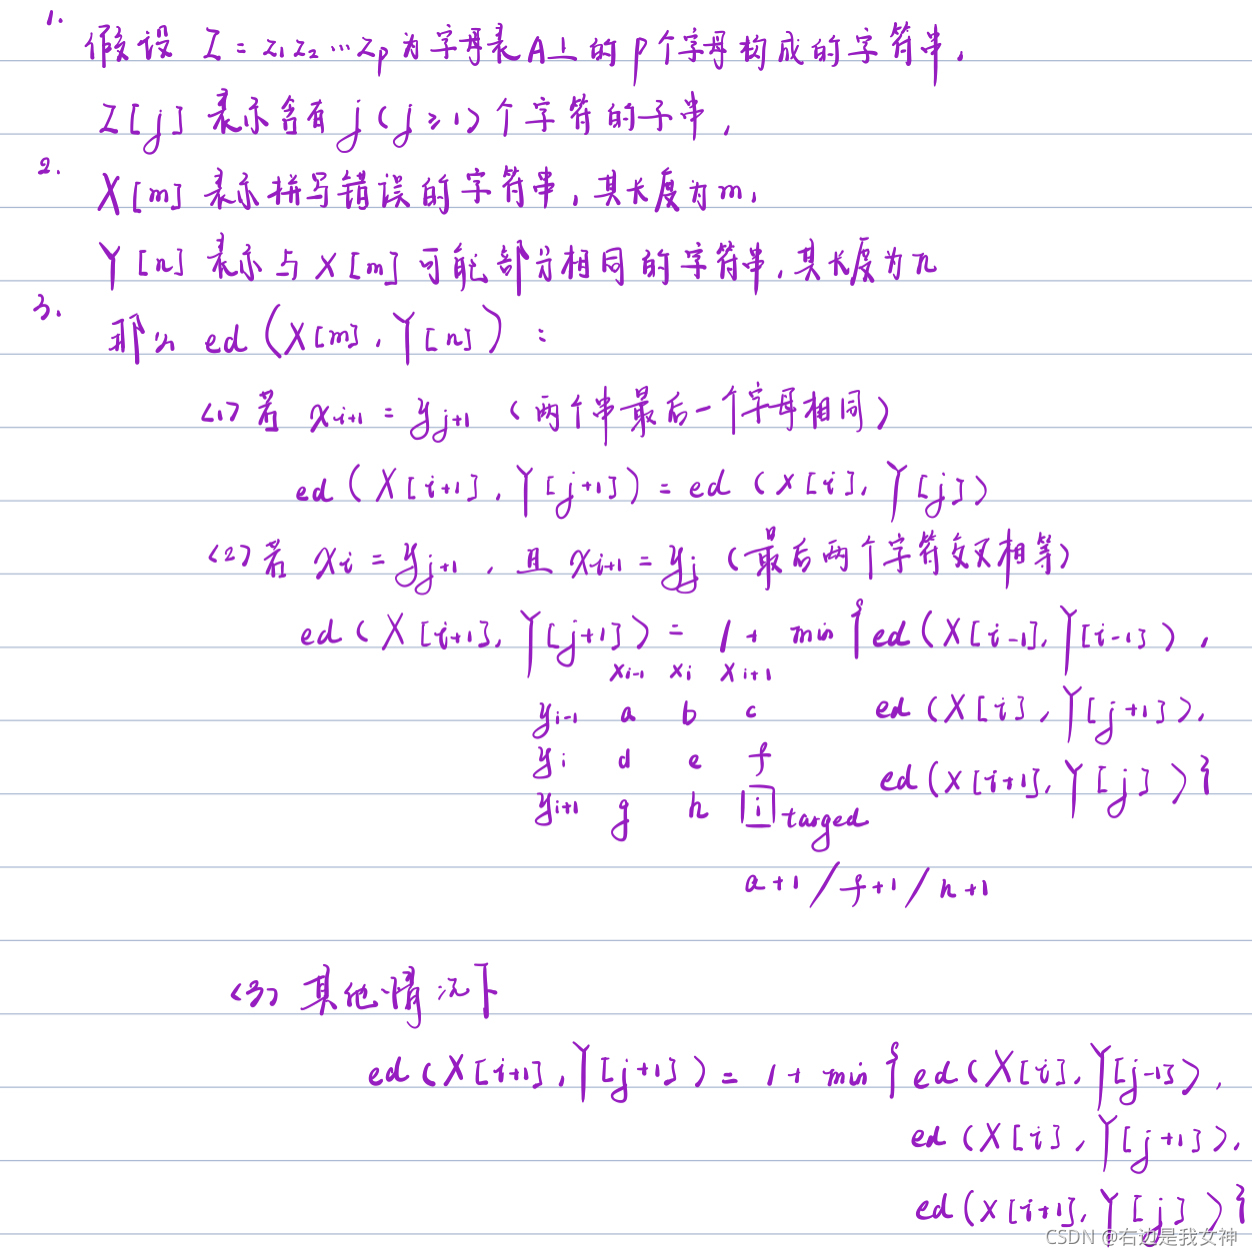 1.
假设 Z = z₁z₂…zₚ 为字母表A上的p个字母构成的字符串,
Z[j] 表示含有 j(j≥1)个字符的子串,
2.
X[m] 表示拼写错误的字符串,其长度为m,
Y[n] 表示与X[m]可能部分相同的字符串,其长度为n
3.
那么 ed(X[m], Y[n]):
(1)若 xᵢ₊₁ = yⱼ₊₁ (两个串最后一个字母相同)
ed(X[i+1], Y[j+1]) = ed(X[i], Y[j])
(2)若 xᵢ = yⱼ₊₁, 且 xᵢ₊₁ = yⱼ (最后两个字符交叉相等)
ed(X[i+1], Y[j+1]) = 1+ min{ed(X[i-1], Y[i-1]),
xᵢ₋₁ xᵢ xᵢ₊₁
yᵢ₋₁ a b c ed(X[i], Y[j+1]),
yᵢ d e f
ed(X[i+1], Y[j])}
yᵢ₊₁ g h i targed
a+1/f+1/h+1
(3)其他情况下
ed(X[i+1], Y[j+1]) = 1+ min{ed(X[i], Y[j-1]),
ed(X[i], Y[j+1]),
ed(X[i+1], Y[j])}
CSDN @右边是我女神